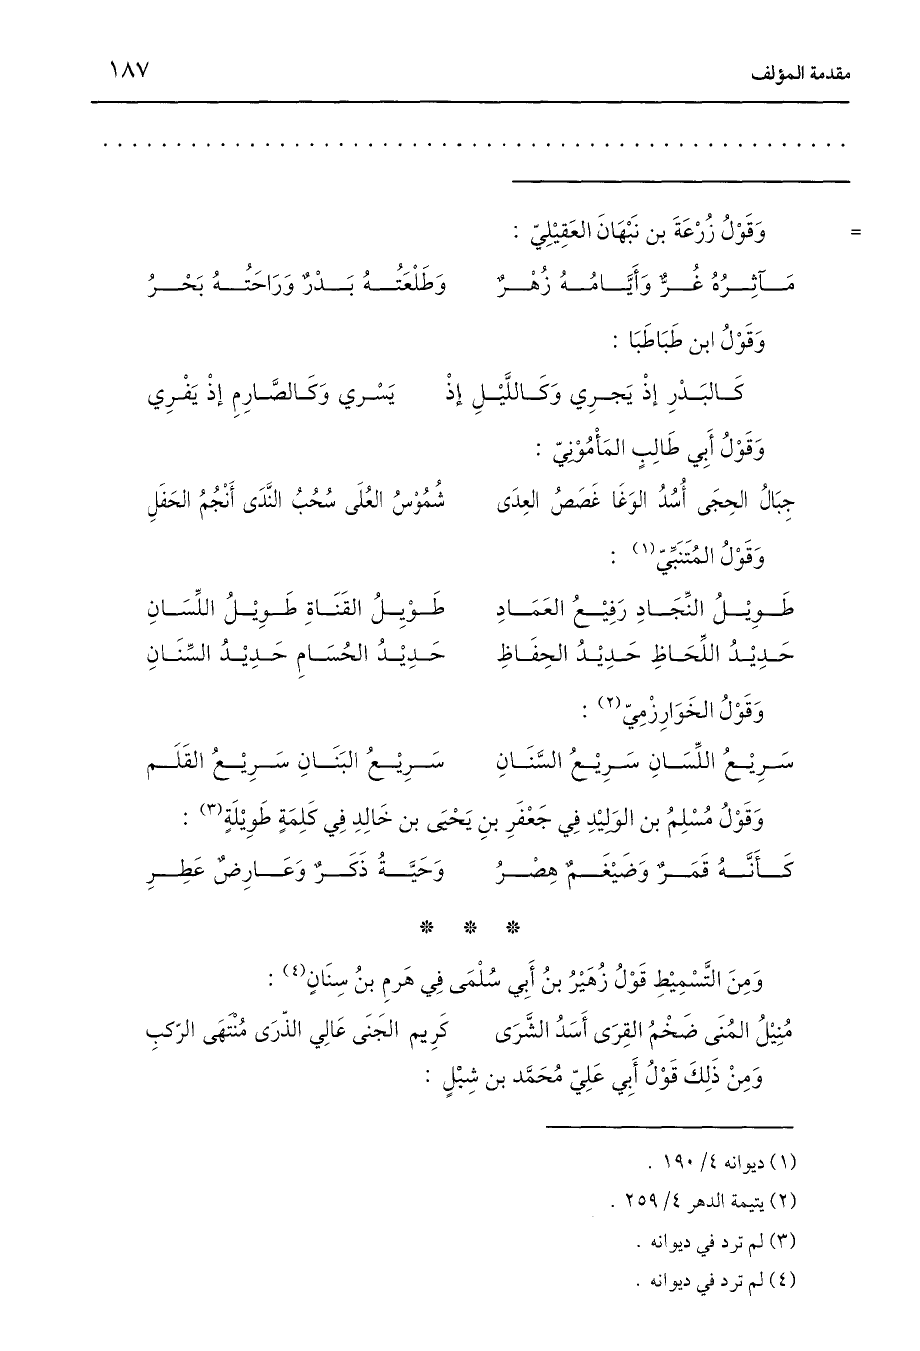 مقدمة المؤلف ١٨٧
. . . . . . . . . . . . . . . . . . . . . . . . . . . . . . . . . . . . . . . . . . . . . . . . . . .
= وَقَوْلُ زُرْعَةَ بن نَبْهَانَ العَقِيْلِيّ :
مَـآثِـرُهُ غُـرٌّ وَأَيَّـامُـهُ زُهْـرٌ وَطَلْعَتُـهُ بَـدْرٌ وَرَاحَتُـهُ بَحْـرُ
وَقَوْلُ ابن طَبَاطَبَا :
كَـالبَـدْرِ إِذْ يَجـرِي وَكَـاللَّيْـلِ إِذْ يَسْـرِي وَكَـالصَّـارِمِ إِذْ يَفْـرِي
وَقَوْلُ أَبِي طَالِبٍ المَأْمُوْنِيّ :
جِبَالُ الحِجَى أُسْدُ الوَغَا غَصَصُ العِدَى شُمُوْسُ العُلَى سُحُبُ النَّدَى أَنْجُمُ الحَفَلِ
وَقَوْلُ المُتَنَبِّيّ(١) :
طَـوِيْـلُ النِّجَـادِ رَفِيْـعُ العَمَـادِ طَـوْيِـلُ القَنَـاةِ طَـوِيْـلُ اللِّسَـانِ
حَـدِيْـدُ اللَّحَـاظِ حَـدِيْـدُ الحِفَـاظِ حَـدِيْـدُ الحُسَـامِ حَـدِيْـدُ السِّنَـانِ
وَقَوْلُ الخَوَارِزْمِيّ(٢) :
سَـرِيْـعُ اللِّسَـانِ سَـرِيْـعُ السَّنَـانِ سَـرِيْـعُ البَنَـانِ سَـرِيْـعُ القَلَـمِ
وَقَوْلُ مُسْلِمُ بن الوَلِيْدِ فِي جَعْفَرِ بنِ يَحْيَى بن خَالِدِ فِي كَلِمَةٍ طَوِيْلَةٍ(٣) :
كَـأَنَّـهُ قَمَـرٌ وَضَيْغَـمٌ هِصْـرُ وَحَيَّـةُ ذَكَـرٌ وَعَـارِضٌ عَطِـرِ
* * *
وَمِنَ التَّسْمِيْطِ قَوْلُ زُهَيْرُ بنُ أَبِي سُلْمَى فِي هَرمِ بنُ سِنَانٍ(٤) :
مُنِيْلُ المُنَى ضَخْمُ القِرَى أَسَدُ الشَّرَى كَرِيم الجَنَى عَالِي الذّرَى مُنْتَهَى الرّكبِ
وَمِنْ ذَلِكَ قَوْلُ أَبِي عَلِيّ مُحَمَّد بن شِبْلٍ :
(١) ديوانه ٤/ ١٩٠ .
(٢) يتيمة الدهر ٤/ ٢٥٩ .
(٣) لم ترد في ديوانه .
(٤) لم ترد في ديوانه .